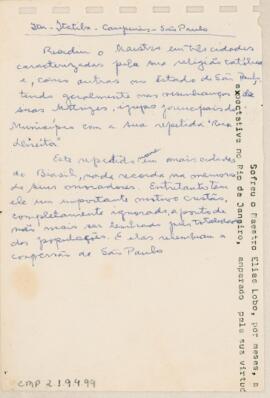 Itu - Itatiba - Campinas - São Paulo
Residiu o Maestro em três cidades
caracterizadas pela sua religião católica
e, como outras no Estado de São Paulo,
tendo geralmente nas visinhanças de
suas Matrizes, igrejas principais do
Município com a sua repetida "Rua
Direita"
Este repetido nome em mais cidades
do Brasil, nada recorda na memoria
de seus moradores. Entretanto tem
ele um importante motivo cristão,
completamente ignorado, a ponto de
não mais ser lembrado pela totalidade
das populações. E elas relembram a
conversão de São Paulo
CMP 2.1.9.4.99
Sofreu o Maestro Elias Lobo, por meses, a
expectativa no Rio de Janeiro, amparado pela sua virtud